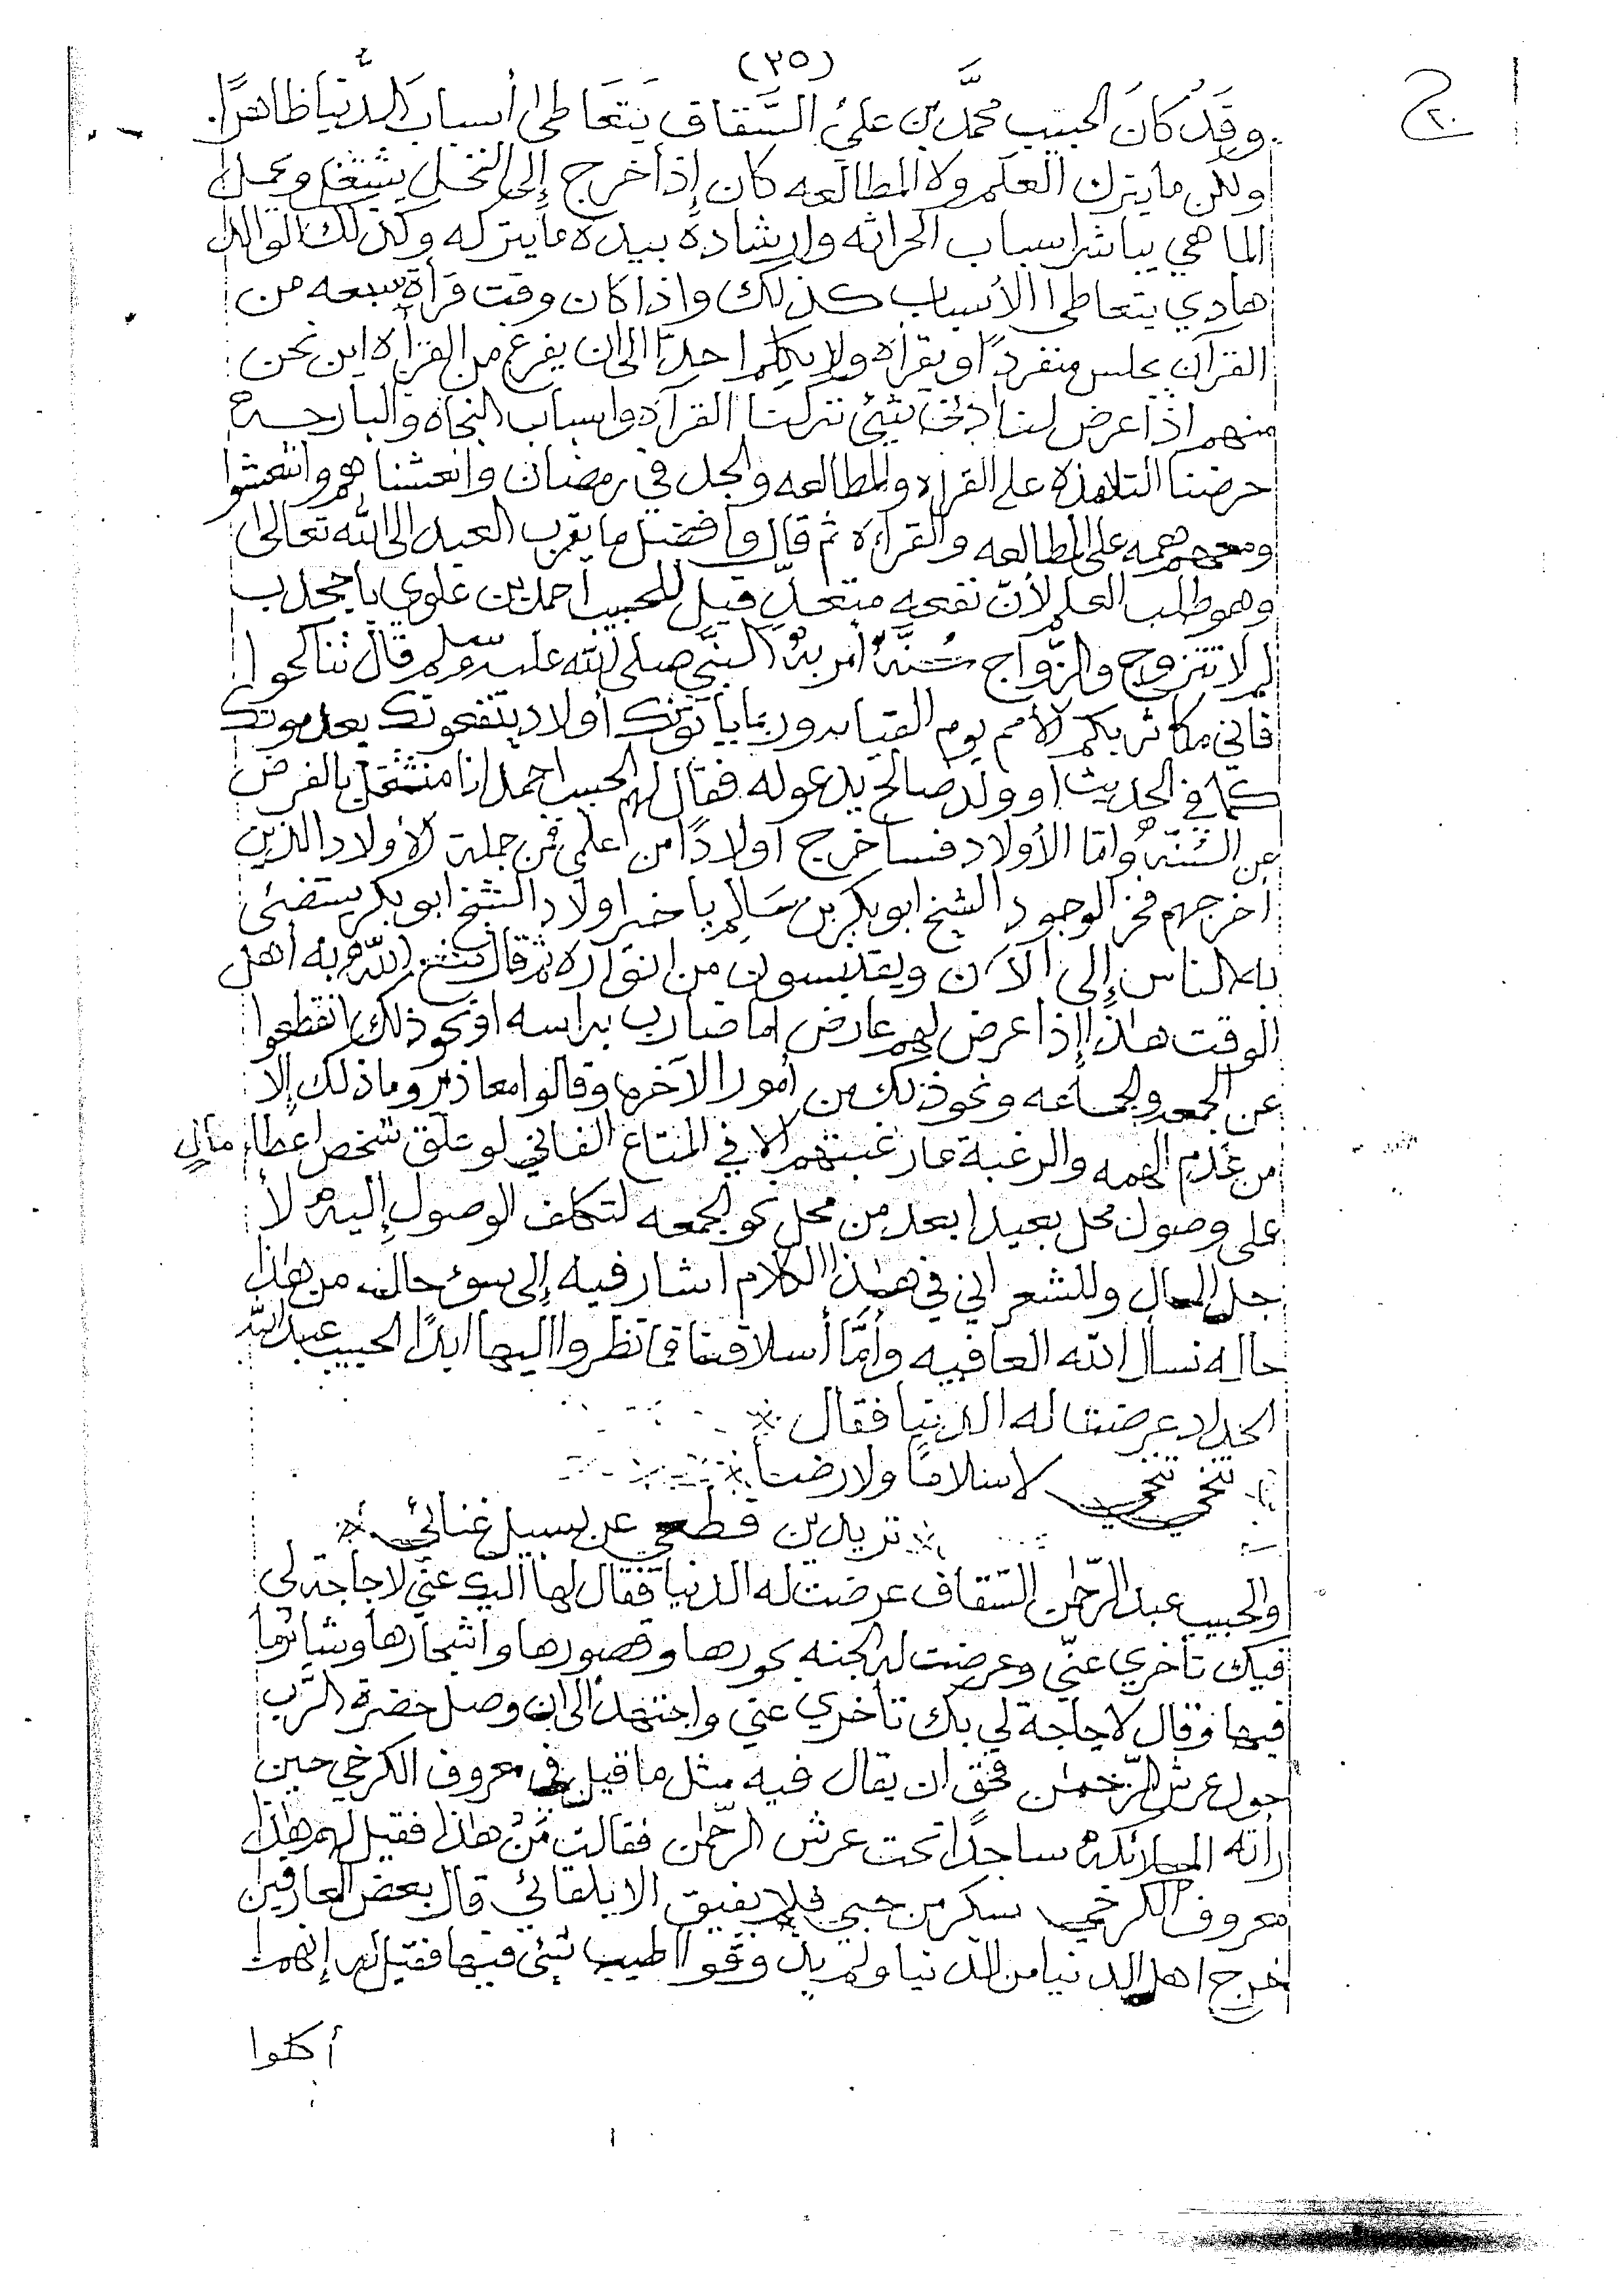 (٣٥)
ج ٢٠
وقَدْ كانَ الحبيب محمَّد بن علي السَّقاف يَتعَاطى أسباب الدُّنيا ظاهرًا
ولكن مايترك العلم ولا المطالعه كان إذا خرج إلى النخل يشتغل وعمل
الماهي يباشر اسباب الحراثه وإرشاده بيده مايتركه وكذلك الوالد
هادي يتعاطى الأسباب كذلك واذا كان وقت قرأة سبعه من
القرآن يجلس منفردًا ويقرأه ولا يكلم احدًا الى ان يفرغ من القرأه اين نحن
منهم اذا عرض لنا ادنى شيئ تركنا القرآة واسباب النجاه والبارحه
حرضنا التلامذه على القراه والمطالعه والجد في رمضان وانعشناهم وانتعشوا
ومعهم همه على المطالعه والقراءة ثم قال وافضل مايقرب العبد الى الله تعالى
وهو طلب العلم لأنّ نفعه متعدِّ قيل للحبيب احمد بن علوي باجحدب
لم لا تتزوج والزّواج سُنَّةٌ أمر بهُ النَّبي صلى الله عليه وسلم قال تناكحوا
فاني مكاثر بكم الأمم يوم القيامه وربما يأتونك أولاد ينفعونك بعد موتك
كما في الحديث او ولد صالح يدعو له فقال لهم الحبيب احمد انا منشغل بالفرض
عن السُّنّه وامّا الأولاد فسأخرج أولادًا من اعلمي فمن جملة الأولاد الذين
اخرجهم فخر الوجود الشيخ ابوبكر بن سَالم ياخير اولاد الشيخ ابوبكر يستضئى
به الناس إلى الآن ويقتبسون من انواره ثم قال الله به أهل
الوقت هذا إذا عرض لهم عارض اما ضارب براسه او نحو ذلك انقطعوا
عن الجمعه والجماعه ونحو ذلك من أمور الآخره وقالوا معاذير وما ذلك إلّا
من عَدم الهمه والرغبة مارغبتهم إلا في المتاع الفاني لو علق شخص اعطاء مالٍ
على وصول محل بعيد ابعد من محل نحو الجمعه لتكلف الوصول إليه لأ
جل المال وللشعراني في هذا الكلام اشار فيه إلى سوء حال من هذا
حاله نسأل الله العافيه وأمَّا أسلافنا فما نظروا اليها ابدًا الحبيب عبد الله
الحداد عرضت له الدنيا فقال ※
تنحي تنحي لاسلامًا ولا رضا ※
※ تريدين قطعي عن سبيل غنائي ※
والحبيب عبد الرّحمٰن السّقاف عرضت له الدنيا فقال لها اليك عنّي لاحاجة لى
فيك تأخري عنّي وعرضت له الجنه بحورها وقصورها واشجارها وشاتها
فيها وقال لاحاجة لي بك تأخري عني واجتهد الى ان وصل حضرة الرَّب
حول عرش الرّحمٰن فحق ان يقال فيه مثل ماقيل في معروف الكرخي حين
رأته الملائكه ساجدًا تحت عرش الرّحمٰن فقالت مَنْ هذا فقيل لهم هذا
معروف الكرخي سكر من حبي فلم يفيق الا بلقائي قال بعض العارفين
خرج اهل الدنيا من الدنيا ولم يذوقوا اطيب شيئ فيها فقيل له إنهم
أكلوا